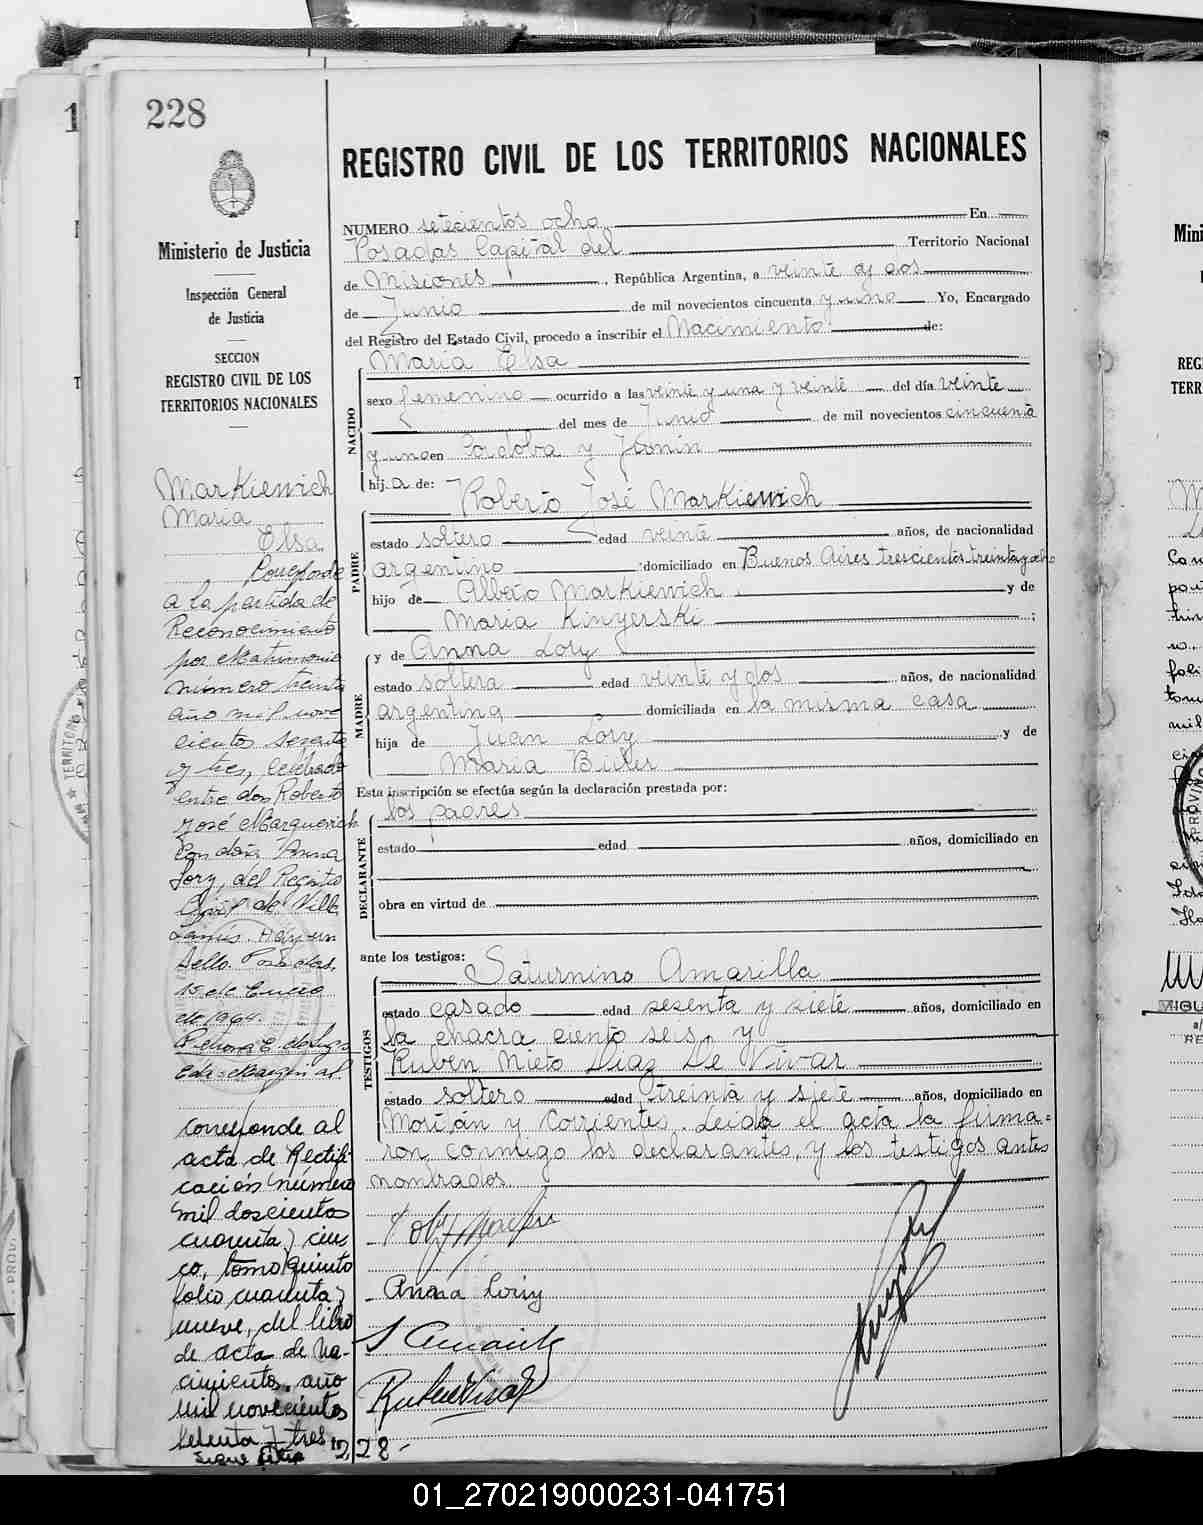 228
REGISTRO CIVIL DE LOS TERRITORIOS NACIONALES
Ministerio de Justicia
Inspección General
de Justicia
SECCION
REGISTRO CIVIL DE LOS
TERRITORIOS NACIONALES
NUMERO setecientos ocho En
Posadas Capital del Territorio Nacional
de Misiones, República Argentina, a veinte y dos
de Junio de mil novecientos cincuenta y uno Yo, Encargado
del Registro del Estado Civil, procedo a inscribir el Nacimiento: de:
NACIDO
María Elsa
sexo femenino ocurrido a las veinte y una y veinte del día veinte
del mes de Junio de mil novecientos cincuenta
y uno en Córdoba y Junín
hij.a de: Roberto José Markiewich
PADRE
estado soltero edad veinte años, de nacionalidad
argentino domiciliado en Buenos Aires trescientos treinta y ocho
hijo de Alberto Markiewich y de
María Kinyerski ;
y de Anna Lory
MADRE
estado soltera edad veinte y dos años, de nacionalidad
argentina domiciliada en la misma casa
hija de Juan Lory y de
María Buler
Esta inscripción se efectúa según la declaración prestada por:
los padres
DECLARANTE
estado edad años, domiciliado en
obra en virtud de
ante los testigos: Saturnino Amarilla
TESTIGOS
estado casado edad sesenta y siete años, domiciliado en
la chacra ciento seis, y
Rubén Nieto Díaz De Vivar
estado soltero edad treinta y siete años, domiciliado en
Morcán y Corrientes. Leida el acta la firma=
ron conmigo los declarantes, y los testigos antes
nombrados.
Anna Loriy
Markiewich
María
Elsa
Corresponde
a la partida de
Reconocimiento
por Matrimonio
número treinta
año mil nove
cientos sesenta
y tres, celebrado
entre don Roberto
José Marguevich
con doña Anna
Lory, del Registro
Civil de Villa
Lanús. Hay un
sello. Posadas,
15 de Enero
de 1964.
corresponde al
acta de Rectifi-
cación número
mil doscientos
cuarenta y cin-
co, tomo quinto
folio cuarenta y
nueve, del libro
de acta de Na-
cimiento, año
mil novecientos
setenta y tres
sigue folio 228-
01_270219000231-041751